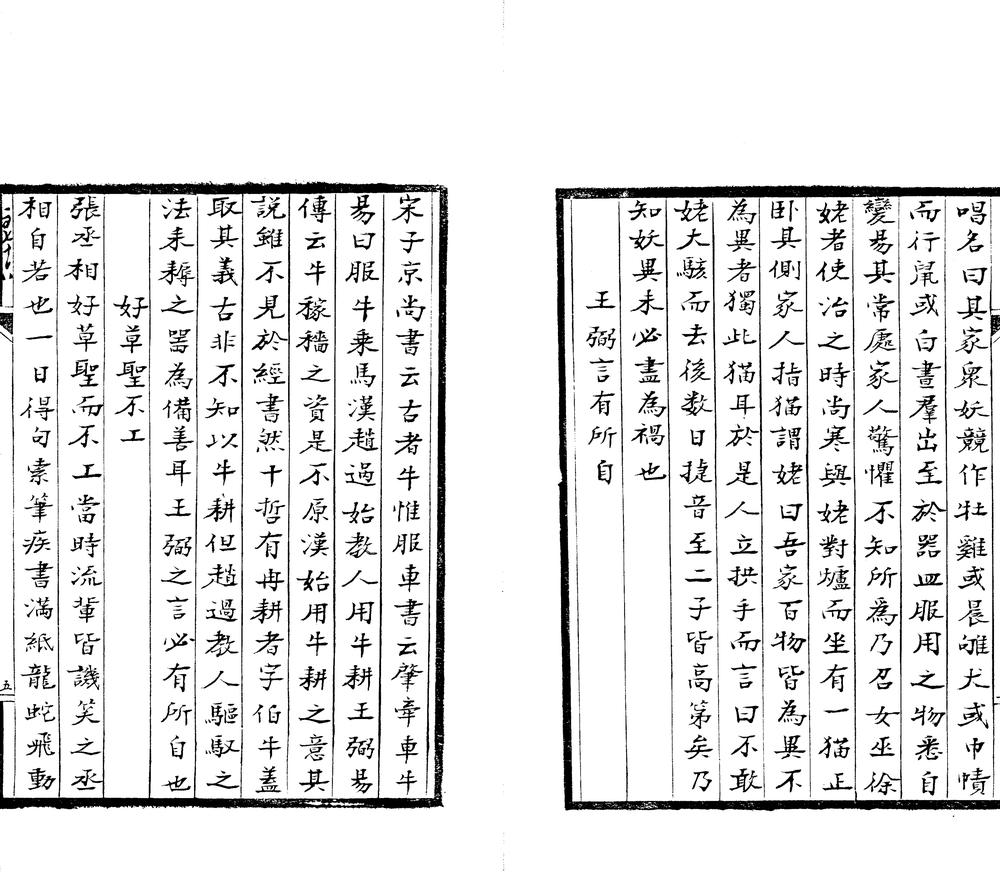 唱名曰其家衆妖競作牡雞或晨雊犬或巾幘
而行鼠或白晝羣出至於器皿服用之物悉自
變易其常處家人驚懼不知所為乃召女巫徐
姥者使治之時尚寒與姥對爐而坐有一猫正
卧其側家人指猫謂姥曰吾家百物皆為異不
為異者獨此猫耳於是人立拱手而言曰不敢
姥大駭而去後数日㨗音至二子皆高第矣乃
知妖異未必盡為禍也
王弼言有所自
宋子京尚書云古者牛惟服車書云肇牽車牛
易曰服牛乗馬漢趙過始教人用牛耕王弼易
傳云牛稼穡之資是不原漢始用牛耕之意其
說雖不見於經書然十哲有冉耕者字伯牛蓋
取其義古非不知以牛耕但趙過教人驅馭之
法耒耨之噐為備善耳王弼之言必有所自也
好草聖不工
張丞相好草聖而不工當時流軰皆譏笑之丞
相自若也一日得句索筆疾書滿紙龍蛇飛動
五